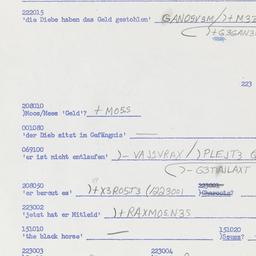 222015
'die Diebe haben das Geld gestohlen' GANOSV3M/)+M3Z
)+G3GAN3
223
208010
)Moos/Mees 'Geld'? +MOSS
001080
'der Dieb sitzt im Gefängnis'
069100
'er ist nicht entlaufen' )-VAJSVRAX/)PLEJT3
-G3T
208050 223001
'er bereut es' )+X3ROST3 (/223001 )Charoote?
223002
'jetzt hat er Mitleid' )+RAXMOSN3S
151010 151020
'the black horse'
223003 223004